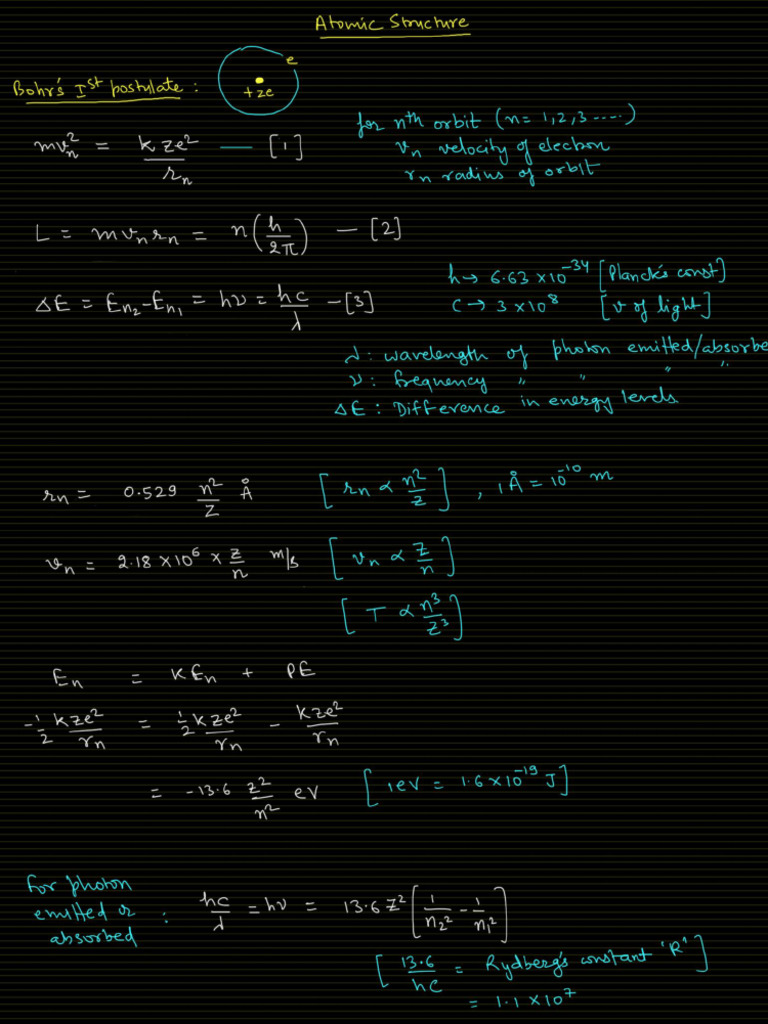 Atomic Structure
Bohr's Ist postulate :
e
+ze
mvn² = kze²/rn — [1]
for nth orbit (n = 1,2,3 ....)
vn velocity of electron
rn radius of orbit
L = mvnrn = n(h/2π) — [2]
h → 6.63 × 10⁻³⁴ [Planck's const]
c → 3 × 10⁸ [v of light]
ΔE = En₂ - En₁ = hν = hc/λ — [3]
λ : wavelength of photon emitted/absorbe
ν : frequency " " " "
ΔE : Difference in energy levels
rn = 0.529 n²/Z Å [rn ∝ n²/Z] , 1Å = 10⁻¹⁰ m
vn = 2.18 × 10⁶ × z/n m/s [vn ∝ Z/n]
[T ∝ n³/Z³]
En = KEn + PE
-1/2 kze²/rn = 1/2 kze²/rn - kze²/rn
= -13.6 z²/n² eV [1eV = 1.6 × 10⁻¹⁹ J]
For photon
emitted or
absorbed :
hc/λ = hν = 13.6 Z² [1/n₂² - 1/n₁²]
[13.6/hc = Rydberg's constant 'R']
= 1.1 × 10⁷